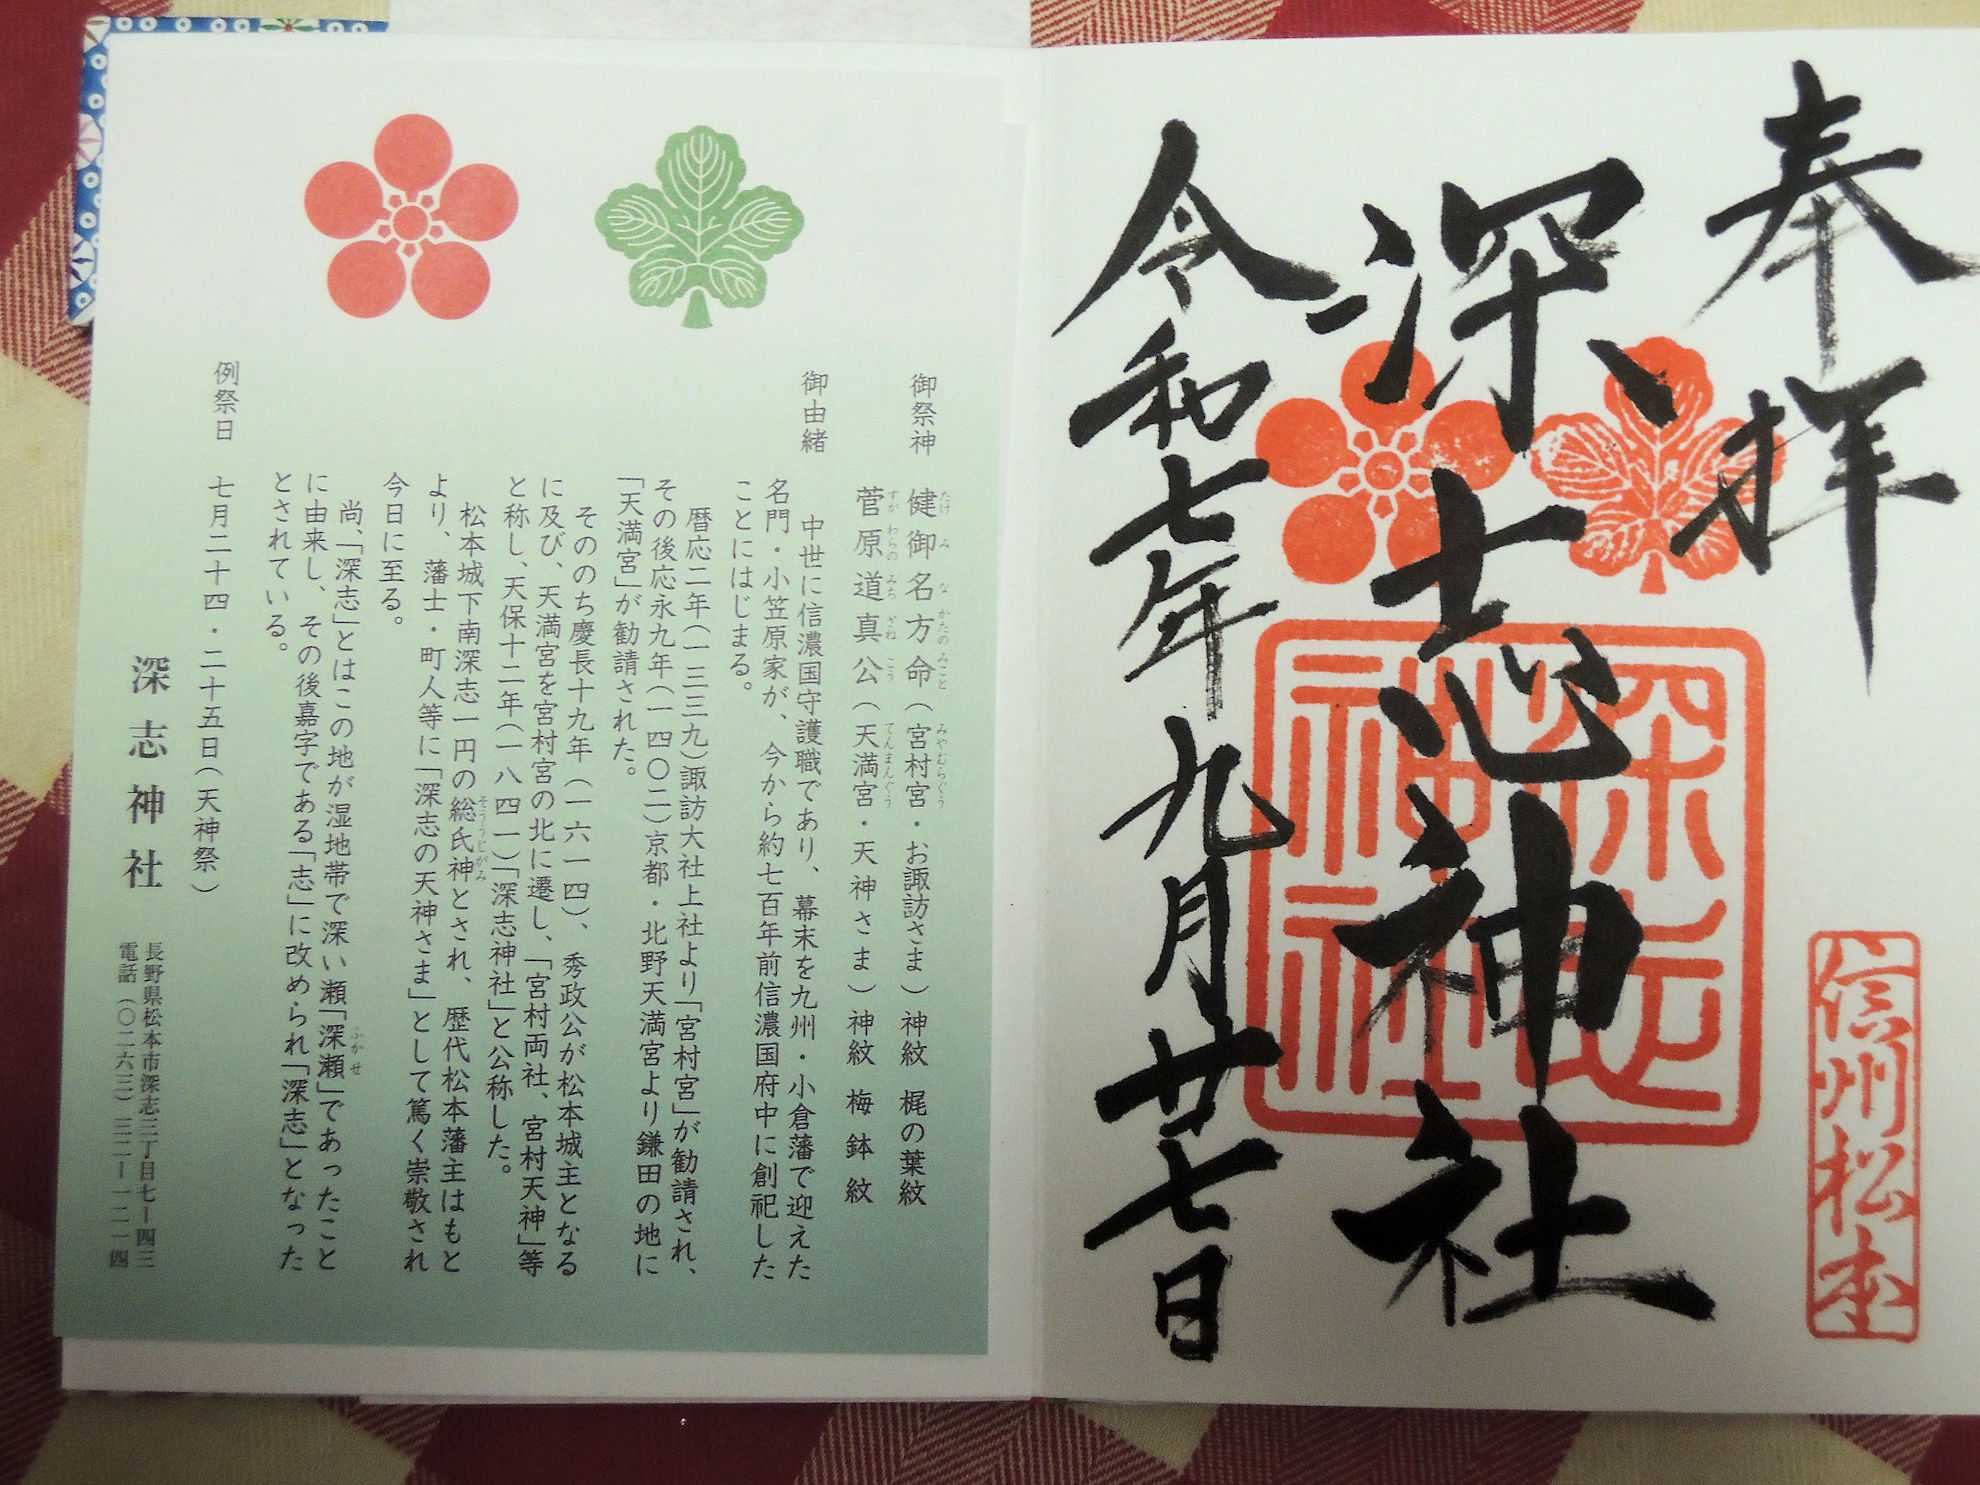 奉拝
深志神社
令和七年九月廿七日
深志神社
信州松本
御祭神
健御名方命（宮村宮・お諏訪さま）神紋 梶の葉紋
たけみなかたのみこと
みやむらぐう
菅原道真公（天満宮・天神さま）神紋 梅鉢紋
すがわらのみちざねこう
てんまんぐう
御由緒
中世に信濃国守護職であり、幕末を九州・小倉藩で迎えた
名門・小笠原家が、今から約七百年前信濃国府中に創祀した
ことにはじまる。
暦応二年（一三三九）諏訪大社上社より「宮村宮」が勧請され、
その後応永九年（一四〇二）京都・北野天満宮より鎌田の地に
「天満宮」が勧請された。
そののち慶長十九年（一六一四）、秀政公が松本城主となる
に及び、天満宮を宮村宮の北に遷し、「宮村両社、宮村天神」等
と称し、天保十二年（一八四一）「深志神社」と公称した。
松本城下南深志一円の総氏神とされ、歴代松本藩主はもと
そううじがみ
より、藩士・町人等に「深志の天神さま」として篤く崇敬され
今日に至る。
尚、「深志」とはこの地が湿地帯で深い瀬「深瀬」であったこと
ふかせ
に由来し、その後嘉字である「志」に改められ「深志」となった
とされている。
例祭日 七月二十四・二十五日（天神祭）
深志神社
長野県松本市深志三丁目七ー四三
電話（〇二六三）三二ー一二一四